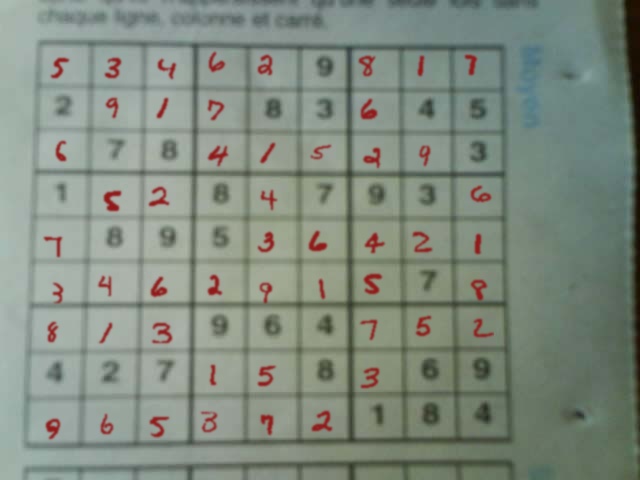 chaque ligne, colonne et carré.
5 3 4 6 2 9 8 1 7
2 9 1 7 8 3 6 4 5
6 7 8 4 1 5 2 9 3
1 5 2 8 4 7 9 3 6
7 8 9 5 3 6 4 2 1
3 4 6 2 9 1 5 7 8
8 1 3 9 6 4 7 5 2
4 2 7 1 5 8 3 6 9
9 6 5 3 7 2 1 8 4
Moyen